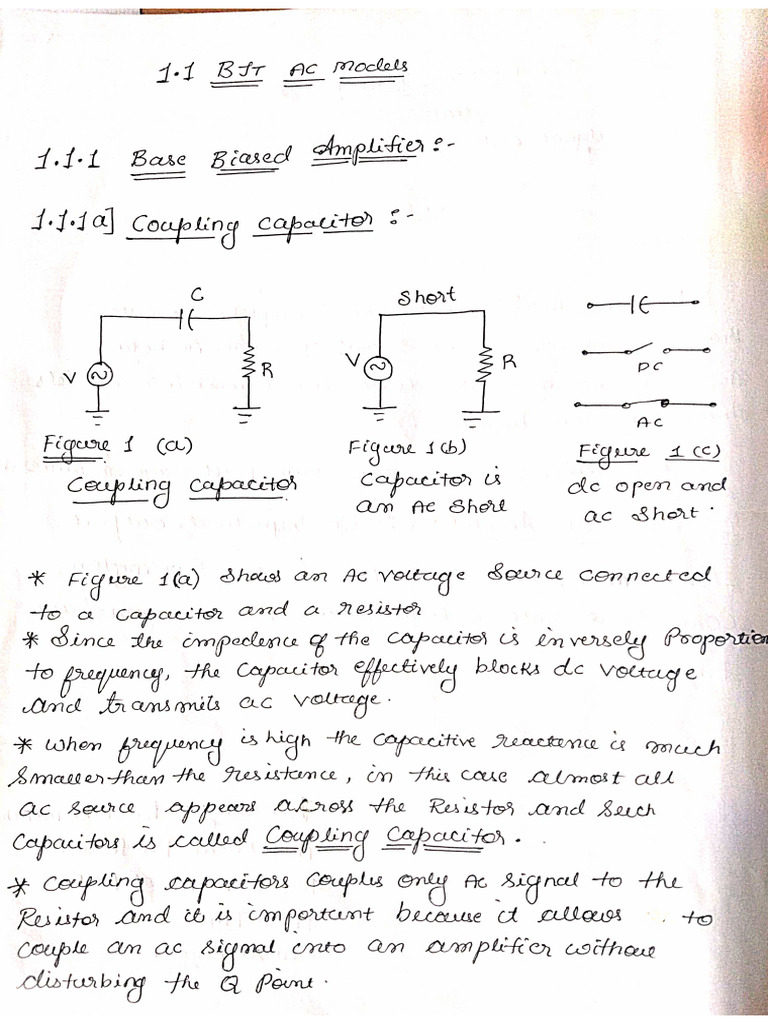 1.1 BJT AC Models
1.1.1 Base Biased Amplifier:-
1.1.1a] Coupling Capacitor :-
C
V
R
Figure 1 (a)
Coupling Capacitor
Short
V
R
Figure 1(b)
Capacitor is
an AC Short
DC
AC
Figure 1 (c)
dc open and
ac short.
* Figure 1(a) shows an AC voltage source connected
to a capacitor and a resistor
* Since the impedence of the capacitor is inversely Proportion
to frequency, the capacitor effectively blocks dc voltage
and transmits ac voltage.
* when frequency is high the capacitive reactance is much
smaller than the resistance, in this case almost all
ac source appears across the Resistor and such
Capacitors is called Coupling Capacitor.
* Coupling capacitors couples only AC signal to the
Resistor and it is important because it allows to
couple an ac signal into an amplifier without
disturbing the Q Point.